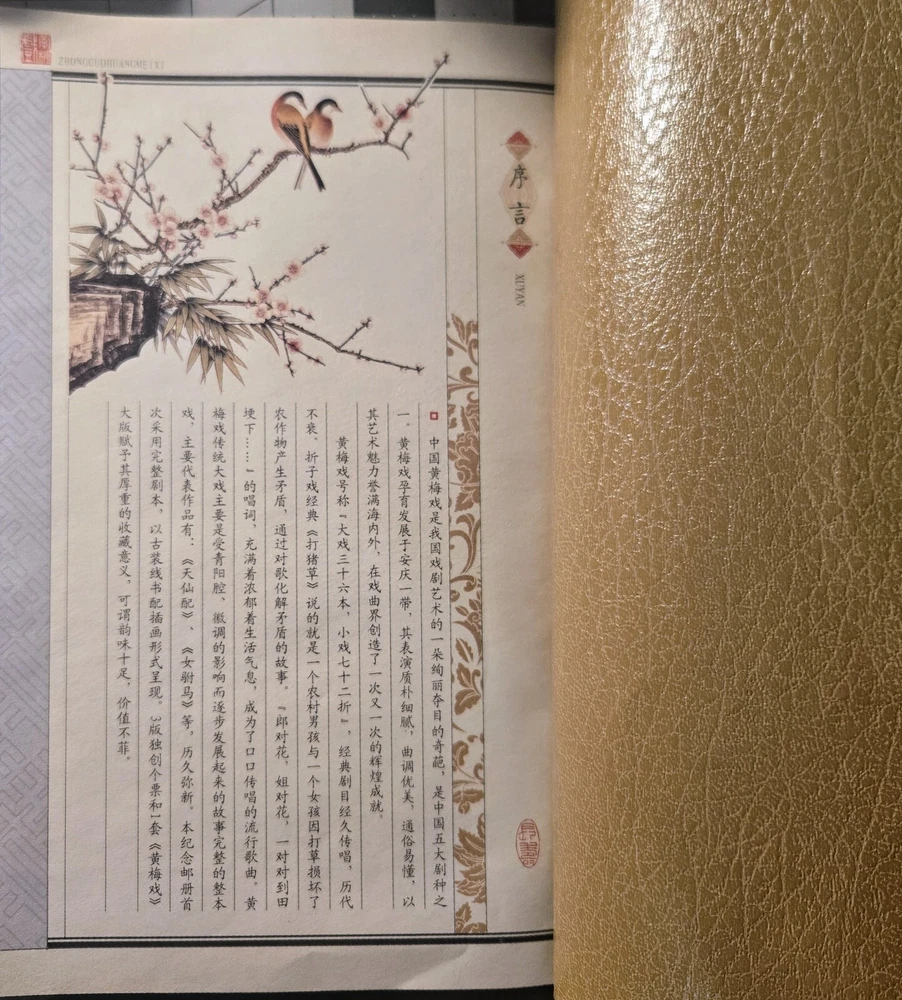 ZHONGGUOHUANGMEIXI
序言
XUYAN
中国黄梅戏是我国戏剧艺术的一朵绚丽夺目的奇葩，是中国五大剧种之
一。黄梅戏孕育发展于安庆一带，其表演质朴细腻，曲调优美，通俗易懂，以
其艺术魅力誉满海内外，在戏曲界创造了一次又一次的辉煌成就。
黄梅戏号称“大戏三十六本，小戏七十二折”，经典剧目经久传唱，历代
不衰。折子戏经典《打猪草》说的就是一个农村男孩与一个女孩因打草损坏了
农作物产生矛盾，通过对歌化解矛盾的故事。“郎对花，姐对花，一对对到田
埂下……”的唱词，充满着浓郁着生活气息，成为了口口传唱的流行歌曲。黄
梅戏传统大戏主要是受青阳腔、徽调的影响而逐步发展起来的故事完整的整本
戏，主要代表作品有：《天仙配》、《女驸马》等，历久弥新。本纪念邮册首
次采用完整剧本，以古装线书配插画形式呈现。3版独创个票和1套《黄梅戏》
大版赋予其厚重的收藏意义，可谓韵味十足，价值不菲。